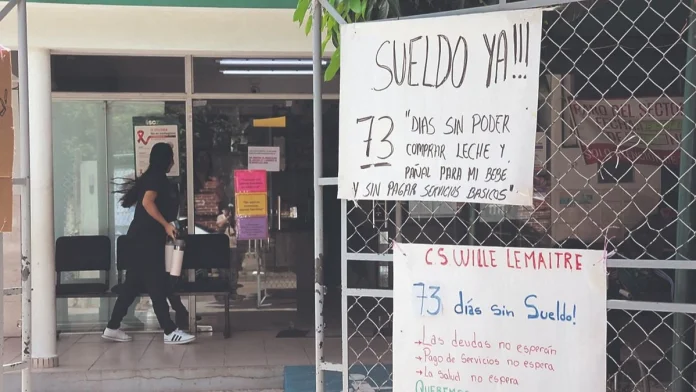 SUELDO YA!!!
73 "DIAS SIN PODER
COMPRAR LECHE Y
PAÑAL PARA MI BEBE
Y SIN PAGAR SERVICIOS BASICOS"
CS WILLE LEMAITRE
73 días sin Sueldo!
→ Las deudas no esperán
→ Pago de Servicios no espera
→ La Salud no espera
QUEREMOS